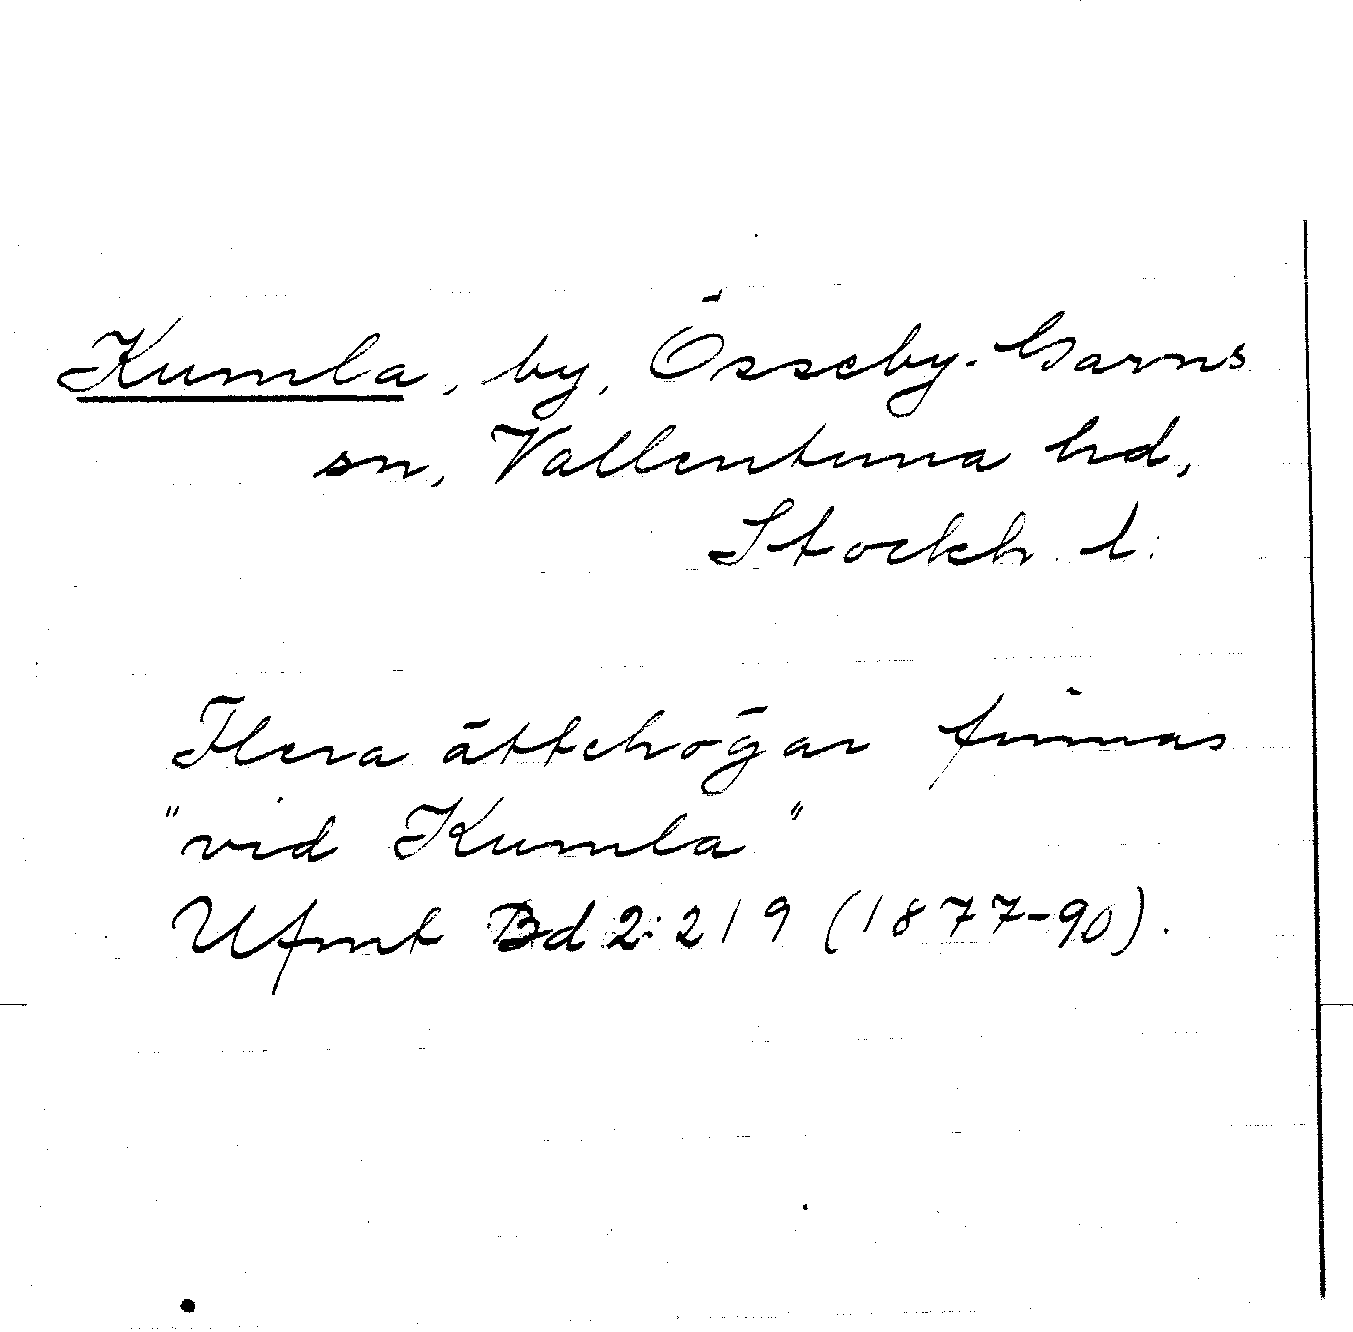 Kumla, by, Össeby-Garns
sn, Vallentuna hd,
Stockh. l.
Flera ättehögar finnas
"vid Kumla"
Ufmt Bd 2:219 (1877-90).